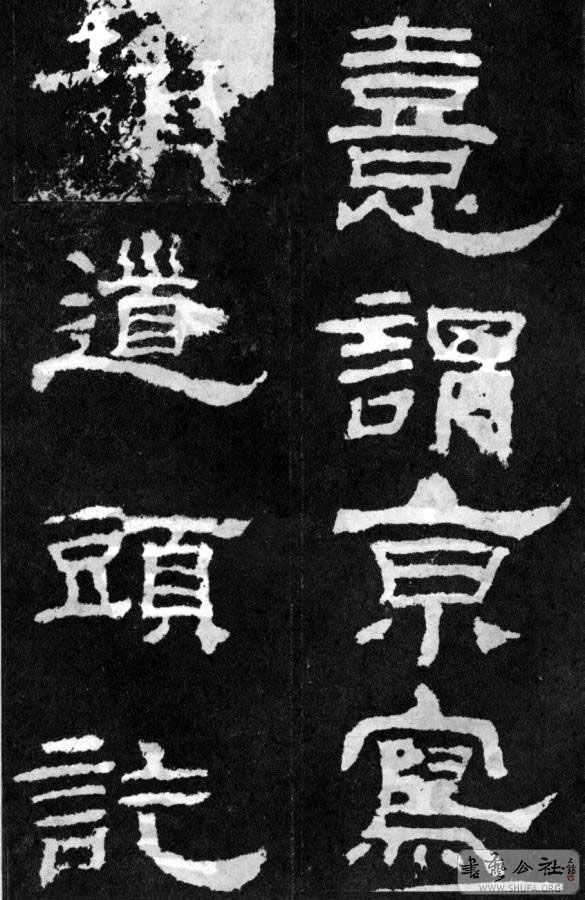 憙謂京寫
道頭訖
書藝公社
WWW.SHUFA.ORG